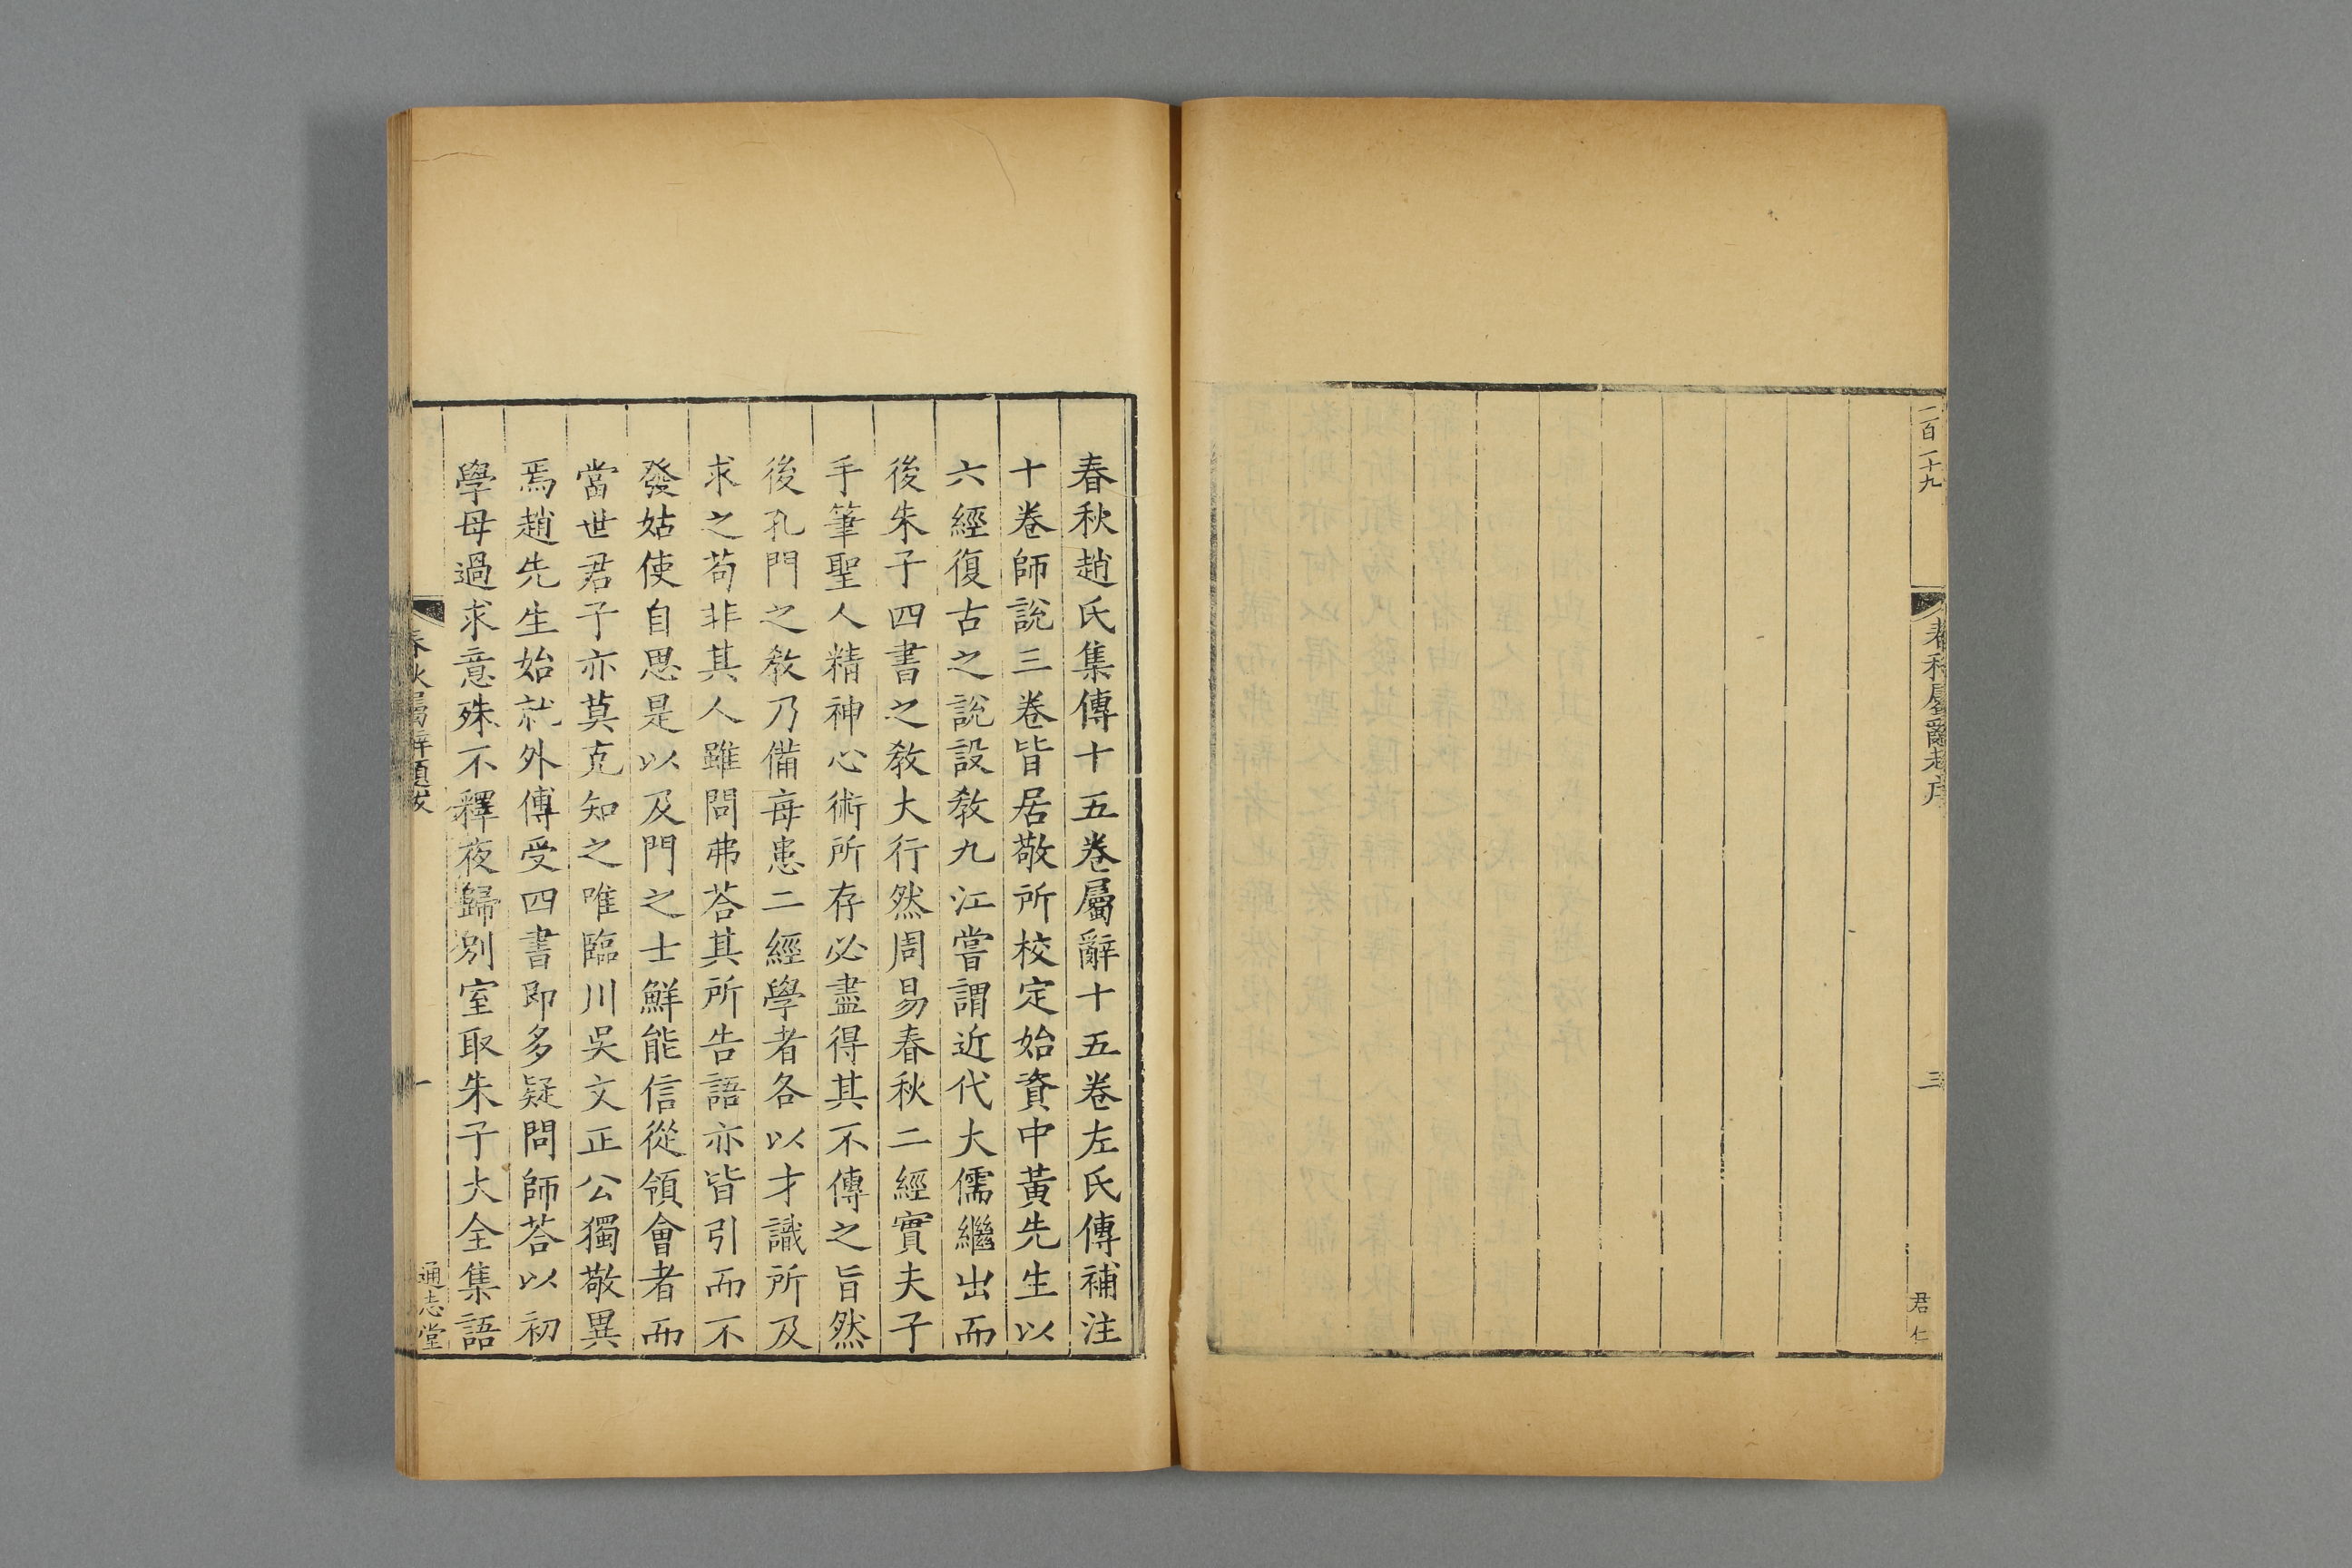 二百二十九
春秋屬辭趙序
三
君仁
春秋趙氏集傳十五卷屬辭十五卷左氏傳補注
十卷師說三卷皆居敬所校定始資中黃先生以
六經復古之說設教九江嘗謂近代大儒繼出而
後朱子四書之教大行然周易春秋二經實夫子
手筆聖人精神心術所存必盡得其不傳之旨然
後孔門之教乃備每患二經學者各以才識所及
求之苟非其人雖問弗荅其所告語亦皆引而不
發姑使自思是以及門之士鮮能信從領會者而
當世君子亦莫克知之唯臨川吳文正公獨敬異
焉趙先生始就外傅受四書即多疑問師荅以初
學毋過求意殊不釋夜歸別室取朱子大全集語
春秋屬辭題跋
一
通志堂